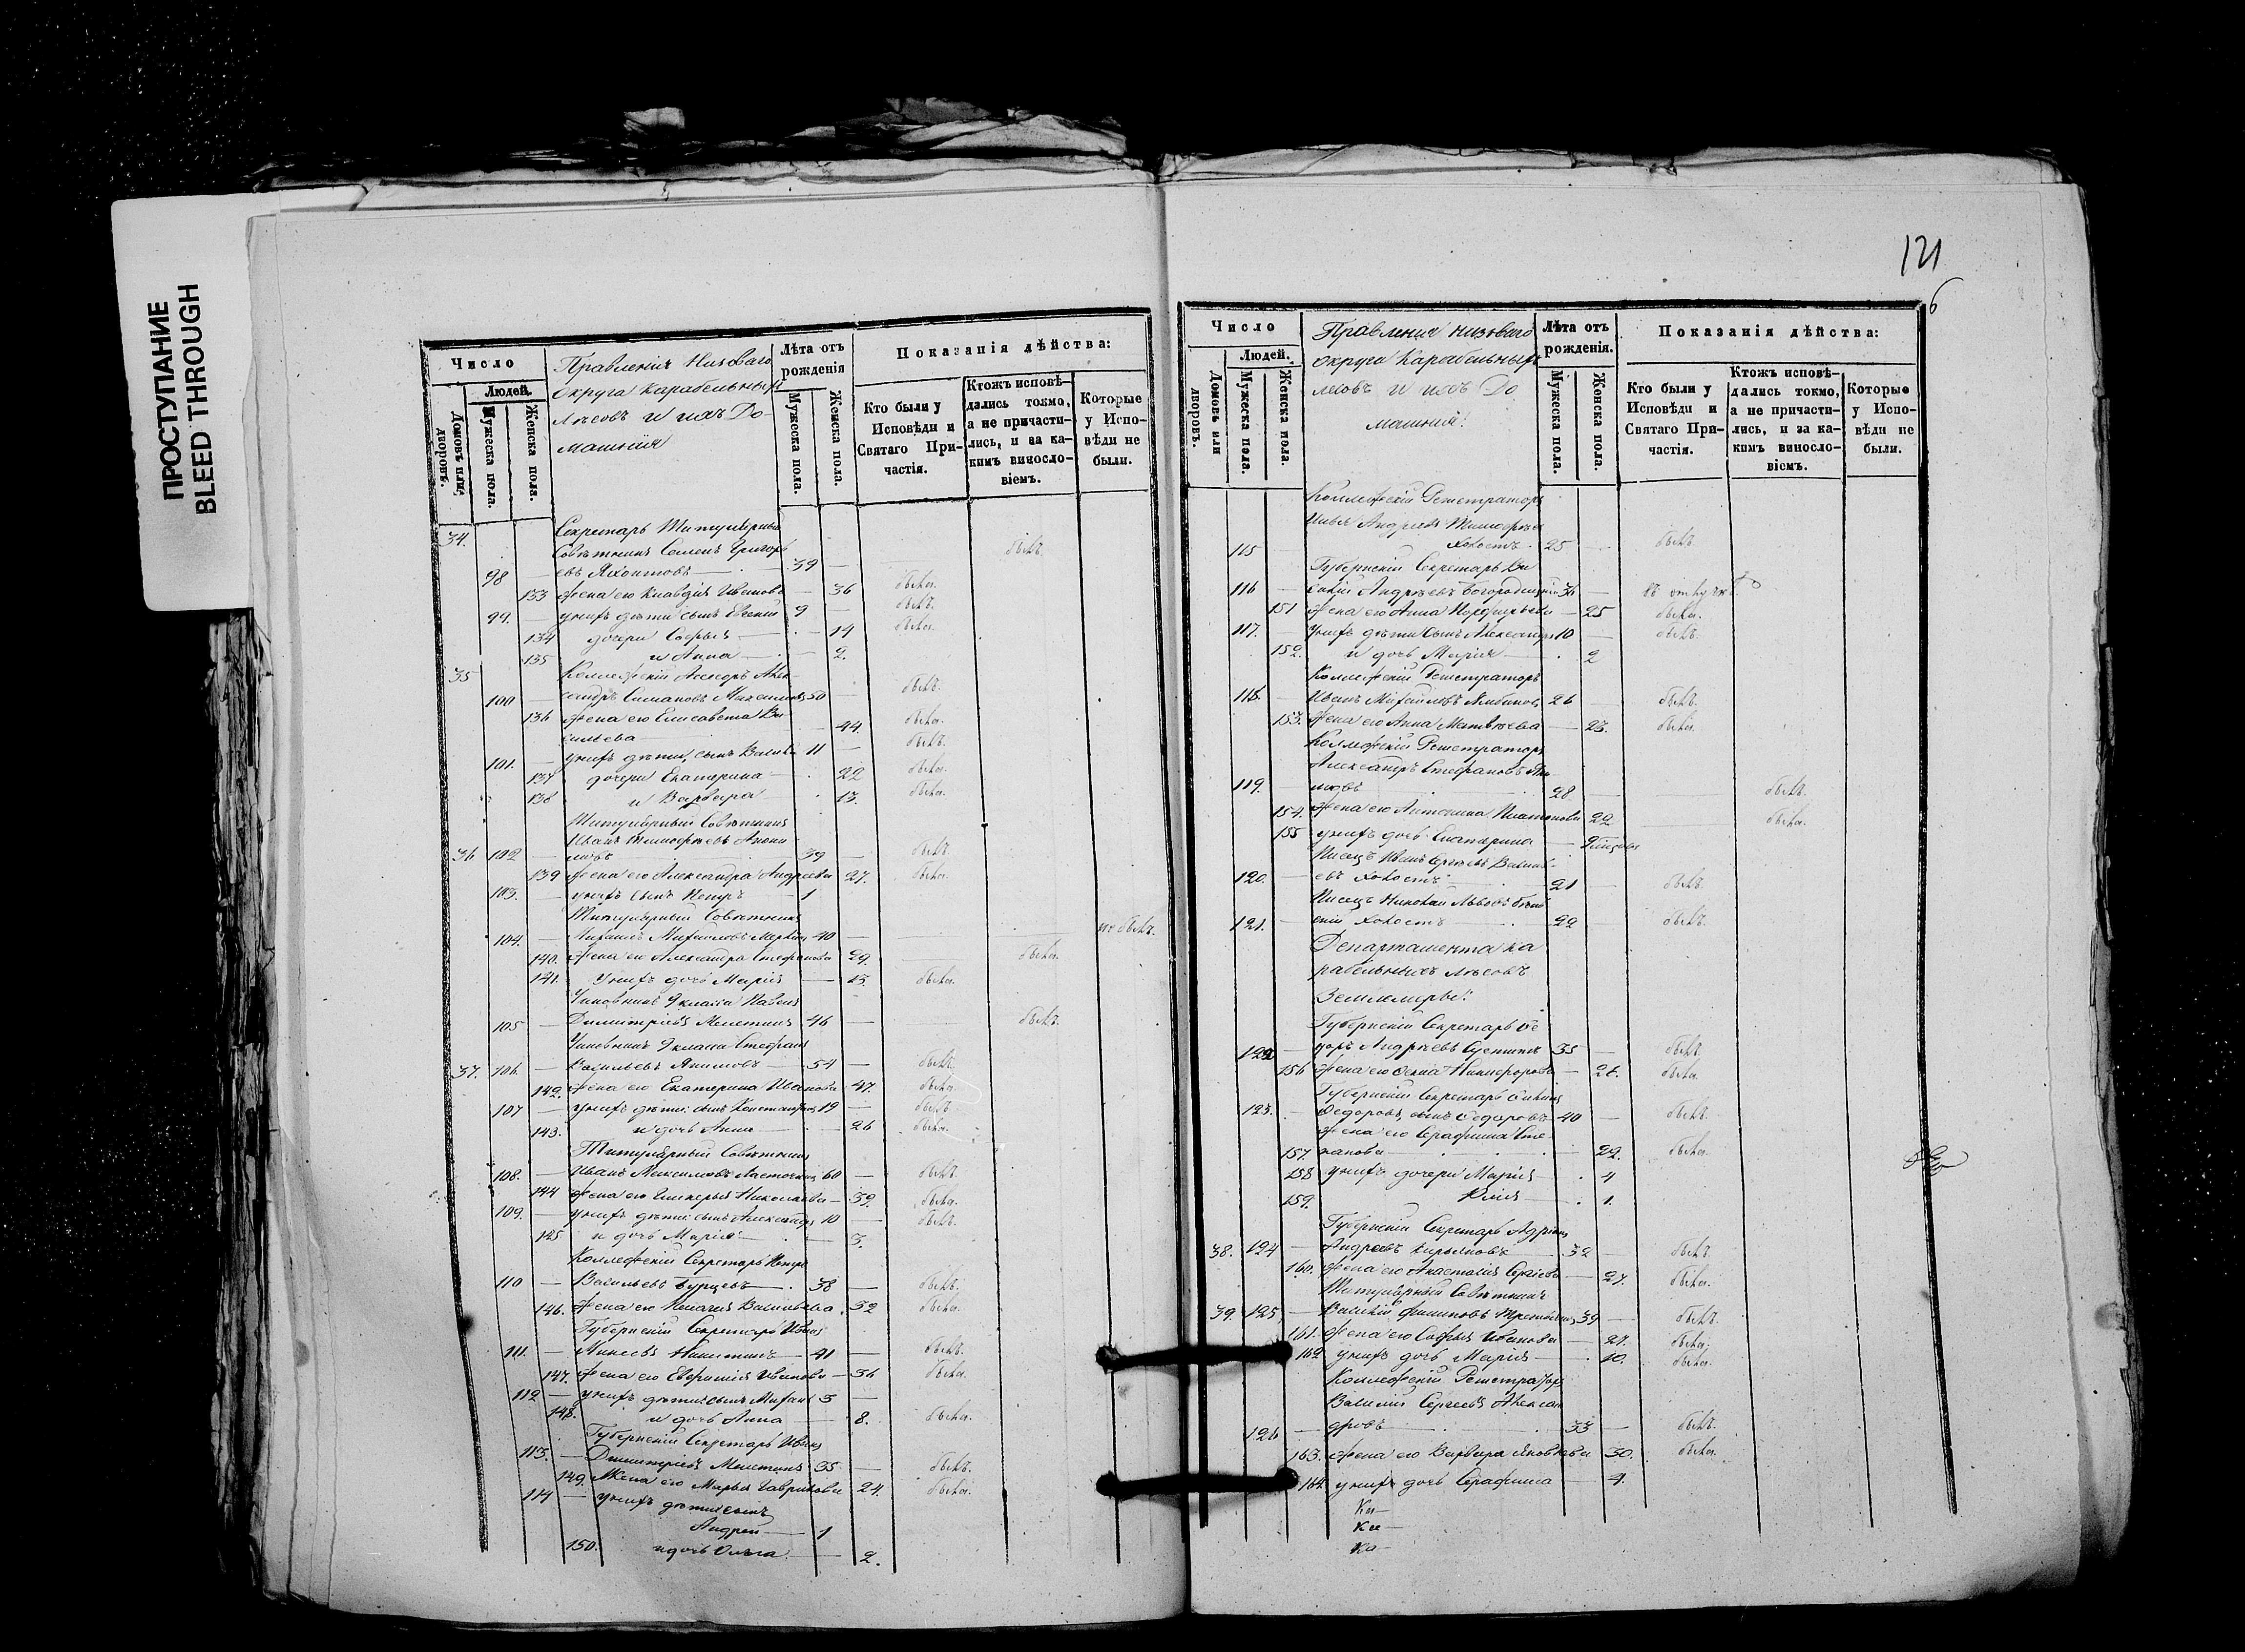 ПРОСТУПАНИЕ
BLEED THROUGH
121
6
Число
Людей.
Домовъ или дворовъ.
Мужеска пола.
Женска пола.
Правленія Низоваго
округа Карабельныхъ
Лѣсовъ и ихъ До-
машнія
Лѣта отъ рожденія
Мужеска пола.
Женска пола.
Показанія дѣйства:
Кто были у Исповѣди и Святаго Причастія.
Ктожъ исповѣдались токмо, а не причастились, и за какимъ винословіемъ.
Которые у Исповѣди не были.
34.
Секретарь Титулярный
Совѣтникъ Семенъ Григорь
98 — евъ Яхонтовъ — 39 — былъ
133 жена его Клавдія Иванова — 36 была.
99. — у нихъ дѣти сынъ Евгеній 9 — былъ.
134 дочери Софья — 14 была.
135 и Анна — 2.
35 Коллежскій Ассесоръ Алек-
100 — сандръ 50 — былъ.
136 жена его Елисавета Ва-
сильева — 44. была.
101. — у нихъ дѣти, сынъ Василій 11 — былъ.
137 дочери Екатерина — 22 была.
138 и Варвара — 13. была.
Титулярный Совѣтникъ
Иванъ Тимофѣевъ
36 102 — 39 — былъ.
139 жена его Александра Андреева 27. была.
103. — у нихъ сынъ Петръ 1
Титулярный Совѣтникъ
104. — Михаилъ Михайловъ 40 — не былъ.
140. жена его Александра Стефанова 29. была.
141. у нихъ дочь Марія — 13. была.
Чиновникъ 9 класса Павелъ
105 — Димитріевъ 46 — былъ.
Чиновникъ 9 класса Стефанъ
37. 106. — Васильевъ Якимовъ — 54 — былъ.
142. жена его Екатерина Иванова 47. была.
107 — у нихъ дѣти: сынъ Константинъ 19 — былъ.
143. и дочь Анна — 26 была.
Титулярный Совѣтникъ
108. — Иванъ Максимовъ Ласточкинъ 60 — былъ.
144 жена его Гликерья Николаева — 39. была.
109. — у нихъ дѣти: сынъ Александръ 10 — былъ.
145 и дочь Марія — 3.
Коллежскій Секретарь Петръ
110 — Васильевъ Бурцевъ — 38 — былъ.
146. жена его Пелагея Васильева 32 была.
Губернскій Секретарь Иванъ
111. — Никитинъ — 41 — былъ.
147. жена его Евфимія Иванова — 36 была.
112 — у нихъ дѣти: сынъ Михаилъ 3 —
148. и дочь Анна — 8. была.
Губернскій Секретарь Иванъ
113. — Димитріевъ 35 — былъ.
149. Жена его Марья Гаврилова 24. была.
114 — у нихъ дѣти: сынъ
Андрей — 1
150. и дочь Ольга — 2.
Число
Людей.
Домовъ или дворовъ.
Мужеска пола.
Женска пола.
Правленія низоваго
округа Карабельныхъ
лѣсовъ и ихъ До
машнія:
Лѣта отъ рожденія.
Мужеска пола.
Женска пола.
Показанія дѣйства:
Кто были у Исповѣди и Святаго Причастія.
Ктожъ исповѣдались токмо, а не причастились, и за какимъ винословіемъ.
Которые у Исповѣди не были.
Коллежскій Регистраторъ
Андреевъ
115 холостъ. 25 былъ
Губернскій Секретарь Ва
116 — силій Андреевъ Богородицкій 36 — въ отпуску
151 жена его Анна Порфирьева — 25 была.
117. — у нихъ дѣти сынъ Александръ 10 — былъ.
152. и дочь Марія — 2
Коллежскій Регистраторъ
118. — Иванъ Михайловъ 26 — былъ.
153. жена его Анна Матвѣева — 23. была.
Коллежскій Регистраторъ
Александръ Стефановъ Яки-
119. — мовъ 28 — былъ.
154. жена его Антонина Платонова 22 была.
155 у нихъ дочь Екатерина —
Писецъ Иванъ Сергѣевъ
120. — евъ холостъ — 21 — былъ.
Писецъ Николай Львовъ
121. — скій холостъ 22 — былъ.
Департамента ка
рабельныхъ лѣсовъ
Землемѣры:
Губернскій Секретарь Ѳе
122 — доръ Андреевъ 35 — былъ.
156 жена его Никифорова — 28. была.
Губернскій Секретарь
123. — Федоровъ сынъ Федоровъ — 40 — былъ.
жена его Серафима Сте
157. панова 22. была.
158 у нихъ дочери Марія — 4
159. Юлія — 1.
Губернскій Секретарь Адріанъ
38. 124 — Андреевъ Кирьяновъ — 32 — былъ.
160. жена его Анастасія Сергіева — 27. была.
Титулярный Совѣтникъ
39. 125 — Василій Филиповъ 39 — былъ.
161. жена его Софья Иванова — 27. была.
162 у нихъ дочь Марія — 10. была.
Коллежскій Регистраторъ
Василій Сергеевъ Алексан
126 — дровъ — 33 — былъ.
163. жена его Варвара Яковлева 30. была.
164. у нихъ дочь Серафима — 4.
Ка—
Ка—
Ка—